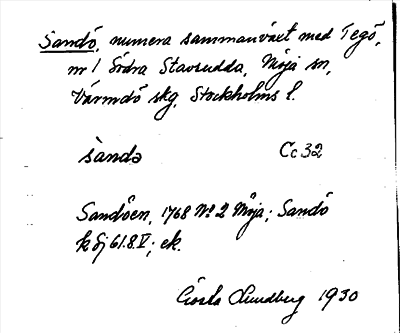 Sandö, numera sammanväxt med Tegö,
nr 1 Södra Stavsudda, Möja sn,
Värmdö skg, Stockholms l.
sandə Cc 32
Sandöen, 1768 No 2 Möja; Sandö
k Sj 61.8.V; ek.
Gösta Lundberg 1930